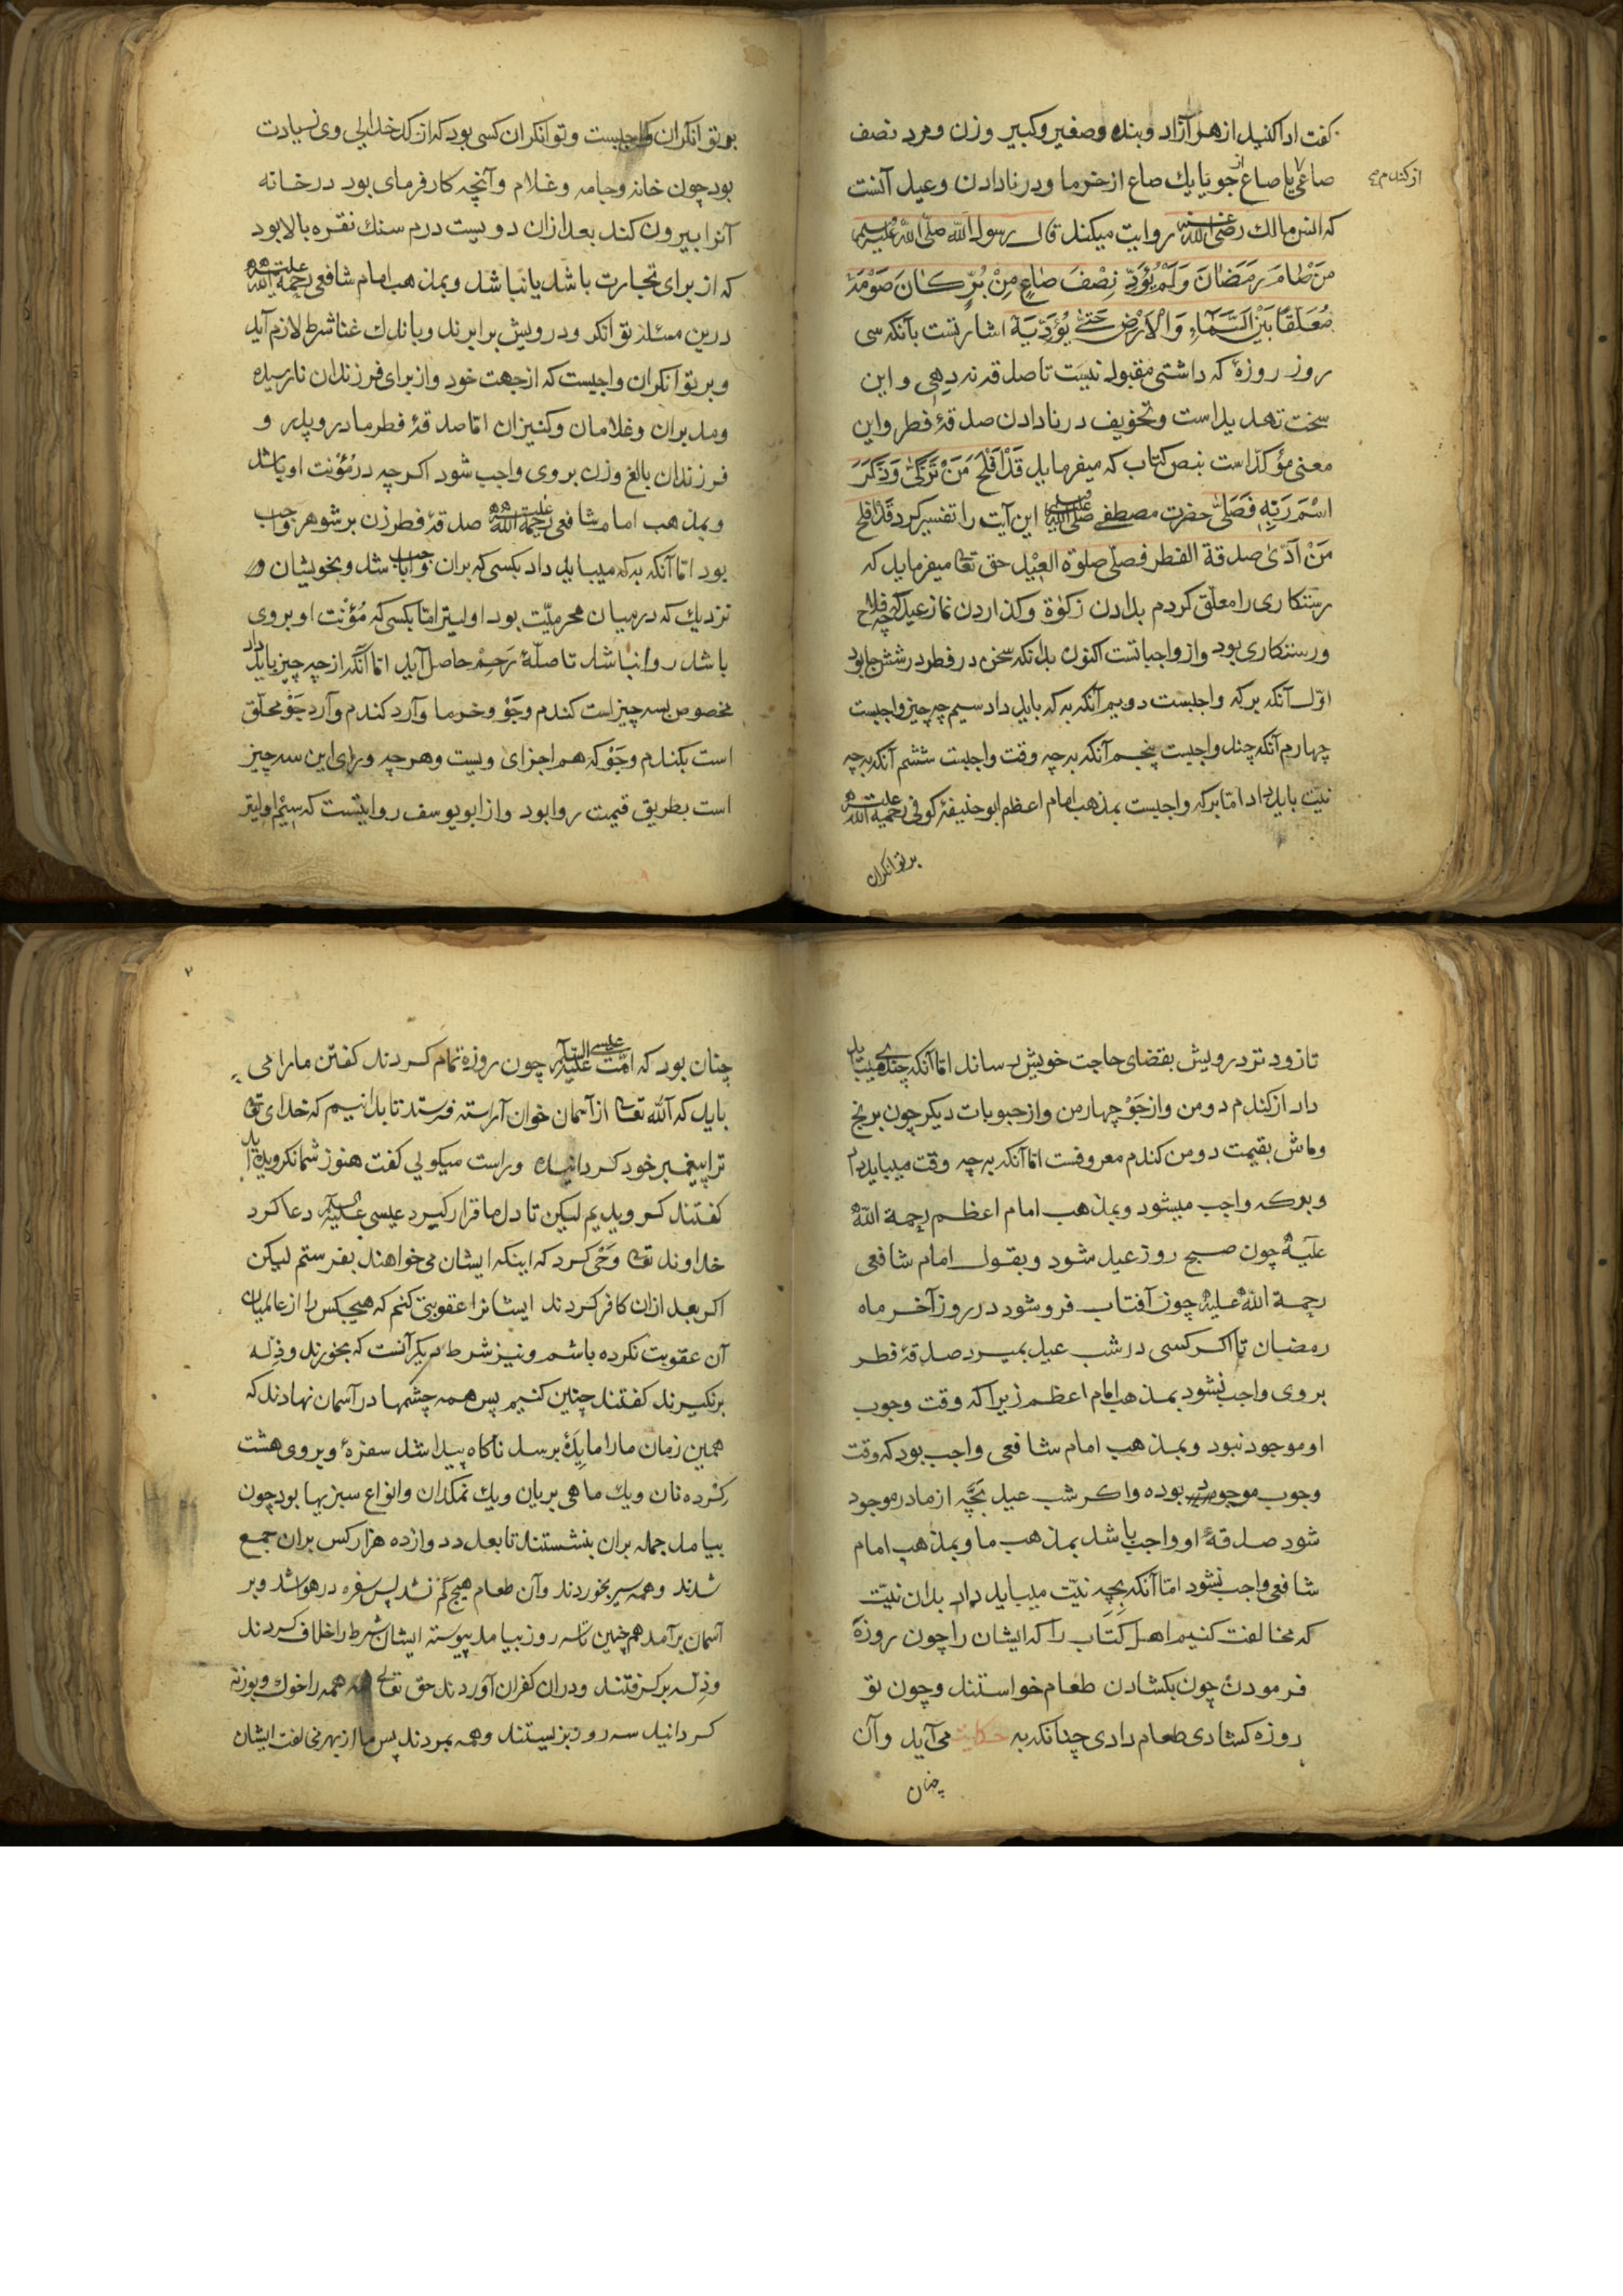 گفت ادا کنید از هر آزاد و بنده و صغیر و کبیر و زن و مرد نصف
صاعی یا صاع از جو یا یك صاع از خرما و در نادادن وعید آنست
از کندم
که انس مالك رضی الله عنه روایت میکند قال رسول الله صلی الله علیه وسلم
مَنْ صَامَ رَمَضَانَ وَلَمْ يُؤَدِّ نِصْفَ صَاعٍ مِنْ بُرٍّ كَانَ صَوْمُهُ
مُعَلَّقًا بَيْنَ السَّمَآءِ وَالْاَرْضِ حَتّٰى يُؤَدِّيَهُ اشارتست بآنکه سی
روز روزهٔ که داشتی مقبول نیست تا صدقه ندهی و این
سخت تهدید است و تخویف در نادادن صدقهٔ فطر و این
معنی مؤکد است بنص کتاب که میفرماید قَدْ اَفْلَحَ مَنْ تَزَكّٰى وَذَكَرَ
اسْمَ رَبِّهٖ فَصَلّٰى حضرت مصطفی صلی الله علیه وسلم این آیت را تفسیر کرد قد افلح
مَنْ اَدّىٰ صدقة الفطر فصلّى صلوة العید حق تعا میفرماید که
رستکاری را معلّق کردم بدادن زکوة و کذاردن نماز عید اکرچه فلاح
و رستکاری بود و از واجباتست اکنون بدانکه سخن در فطر در شش جا بود
اوّل آنکه بر که واجبست دویم آنکه به که باید داد سیم چه چیز واجبست
چهارم آنکه چند واجبست پنجم آنکه به چه وقت واجبست ششم آنکه به چه
نیّت باید داد اما بر که واجبست بمذهب امام اعظم ابو حنیفهٔ کوفی رحمة الله علیه
بر توانکران
بر توانکران واجبست و توانکران کسی بود که از کدخدایی وی زیادت
بود چون خانه و جامه و غلام و آنچه کارفرمای بود در خانه
آنرا بیرون کند بعد ازان دویست درم سنك نقره بالا بود
که از برای تجارت باشد یا نباشد و بمذهب امام شافعی رحمة الله علیه
درین مسئله توانکر و درویش برابرند و باندك غنا شرط لازم آید
و بر توانکران واجبست که از جهت خود و از برای فرزندان نارسیده
و مدبران و غلامان و کنیزان امّا صدقهٔ فطر مادر و پدر و
فرزندان بالغ و زن بر وی واجب شود اکرچه در مُؤنت او باشد
و بمذهب امام شافعی رحمة الله علیه صدقهٔ فطر زن بر شوهر واجب
بود امّا آنکه به که میباید داد بکسی که بران واجب باشد و بخویشان و
نزدیك که در میان محرمیّت بود اولیتر امّا بکسی که مُؤنت او بر وی
باشد روا نباشد تا صلهٔ رَحِمْ حاصل آید امّا آنکه از چه چیز باید داد
مخصوص بسه چیز است کندم و جَوْ و خرما و آرد کندم و آرد جَوْ محلّق
است بکندم و جَوْ که هم اجزای ویست و هر چه ورای این سه چیز
است بطریق قیمت روا بود و از ابو یوسف روایتست که سیْم اولیتر
تا زود تر درویش بقضای حاجت خویش رساند امّا آنکه چند میباید
داد از کندم دو من و از جَوْ چهار من و از حبوبات دیکر چون برنج
و ماش بقیمت دو من کندم معروفست امّا آنکه به چه وقت میباید داد
و بر که واجب میشود و بمذهب امام اعظم رحمة الله
علیه چون صبح روز عید شود و بقول امام شافعی
رحمة الله علیه چون آفتاب فرو شود در روز آخر ماه
رمضان تا اکر کسی در شب عید بمیرد صدقهٔ فطر
بر وی واجب نشود بمذهب امام اعظم زیرا که وقت وجوب
او موجود نبود و بمذهب امام شافعی واجب بود که وقت
وجوب موجود بوده و اکر شب عید بَچّه از مادر موجود
شود صدقهٔ او واجب باشد بمذهب ما و بمذهب امام
شافعی واجب نشود امّا آنکه بچه نیّت میباید داد بدان نیّت
که مخالفت کنیم اهل کتاب را که ایشان را چون روزه
فرمودی چون بکشادن طعام خواستند و چون تو
روزه کشادی طعام دادی چنانکه به حکایت می آید و آن
چنان
چنان بود که امّت عیسی علیه السلام چون روزه تمام کردند کفتن ما را می
باید که الله تعا از آسمان خوان آراسته فرستد تا بدانیم که خدای تعا
ترا پیغمبر خود کردانیده و راست میکویی کفت هنوز شما نکرویده اید
کفتند کرویدیم لیکن تا دل ما قرار کیرد عیسی علیه السلام دعا کرد
خداوند تعا وَحْی کرد که اینکه ایشان می خواهند بفرستم لیکن
اکر بعد ازان کافر کردند ایشانرا عقوبتی کنم که هیچکس را از عالمیان
آن عقوبت نکرده باشم و نیز شرط دیکر آنست که بخورند و ذلّه
برنکیرند کفتند چنین کنیم پس همه چشمها در آسمان نهادند که
همین زمان ما را مایِدَهٔ برسد ناکاه پیدا شد سفرهٔ و بر وی هشت
کرده نان و یك ماهی بریان و یك نمکدان و انواع سبزیها بود چون
بیامد جمله بران بنشستند تا بعدد دوازده هزار کس بران جمع
شدند و همه سیر بخوردند و آن طعام هیچ کم نشد پس سفره در هوا شد و بر
آسمان برآمد هم چنین تا سه روز بیامد پیوسته ایشان شرط را خلاف کردند
و ذلّه برکرفتند و دران کفران آوردند حق تعالی همه را خوك و بوزنه
کردانید سه روز بزیستند و همه بمردند پس ما از بهر مخالفت ایشان